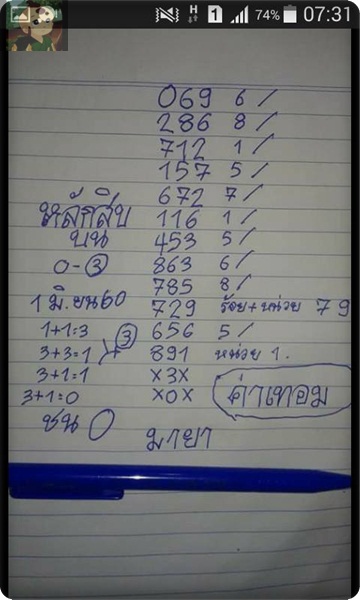 H 1 74% 07:31
069 6 /
286 8 /
712 1 /
157 5 /
672 7 /
หลักสิบ 116 1 /
บน 453 5 /
0-3 863 6 /
785 8 /
1 มิ.ยน60 729 ร้อย+หน่วย 79
1+1=3 3 656 5 /
3+3=1 891 หน่วย 1.
3+1=1 x3x
3+1=0 x0x ค่าเทอม
ชน 0
มายา